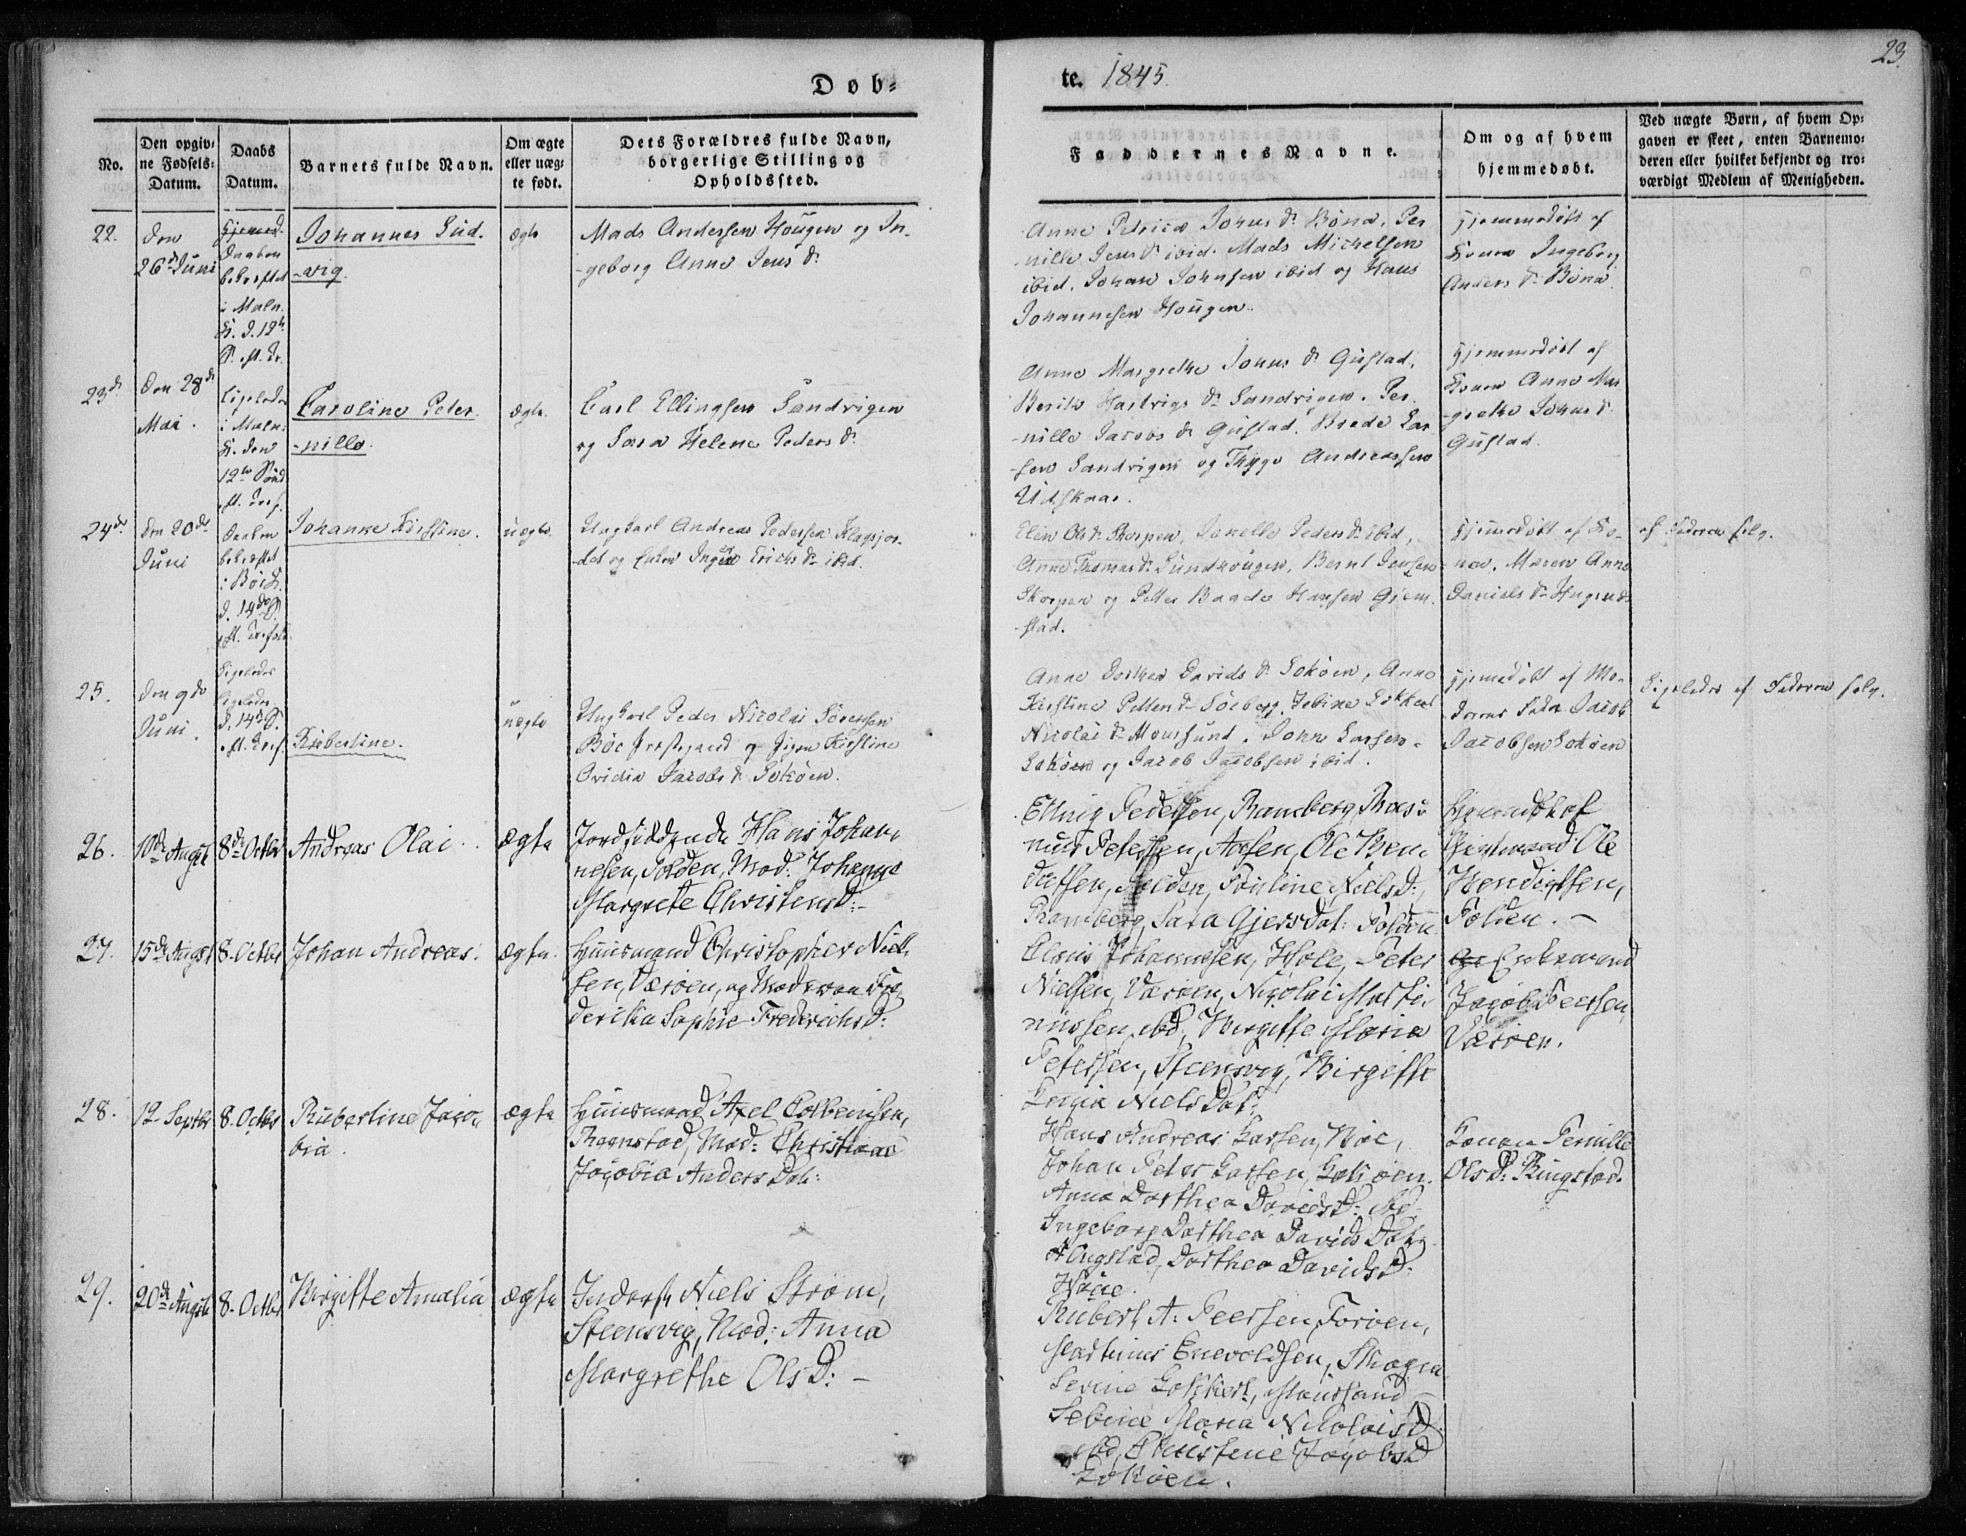 Døb-
te. 1845.
23.
No.
Den opgiv-
ne Fødsels-
Datum.
Daabs
Datum.
Barnets fulde Navn.
Om ægte
eller uæg-
te født.
Dets Forældres fulde Navn,
borgerlige Stilling og
Opholdssted.
Faddernes Navne.
Om og af hvem
hjemmedøbt.
Ved uægte Børn, af hvem Op-
gaven er skeet, enten Barnemo-
deren eller hvilket bekjendt og tro-
værdigt Medlem af Menigheden.
22.
den
26d Juni
Hjemmed.
Daaben
bekræftet
i Maln.
K. d. 12te
Johannes Lud-
-vig.
ægte
Mads Andersen Hougen og In-
-geborg Anne Jens Dr
Anne Petricæ Johns Dr Bønæ, Per-
-nille Jens Dr ibid. Mads Michelsen
ibid. Johan Johnsen ibid og Hans
Johannesen Hougen.
Hjemmedøbt af
Konen Ingeborg
Anders Dr Bönæ
23de
Den 28de
Mai.
Ligeledes
i Maln.
K. den
12te Sönd
eft. Tref.
Caroline Peter-
-nille.
ægte.
Carl Ellingsen Sandvigen
og Sara Helene Peders Dr
Anne Margrethe Johns Dr Gustad,
Berith Hartvigs Dr Sandvigen. Per-
-nille Jacobs Dr Gustad. Brede Lar-
-sen Sandvigen og Thyge Andreassen
Utskaar.
Hjemmedöbt af
Konen Anne Mar-
-grethe Johns Dr
Gustad.
24de
den 20de
Juni
Daaben
bekræftet
i Böe K.
d. 14de S.
eft. Trefold.
Johanne Kirstine.
uægte
Ungkarl Andreas Pedersen Klagsjor-
-det og Enken Inger Erichs Dr ibid.
Elen Ols Dr Skorpen, Pernelle Peders Dr ibid,
Anne Thomas Dr Sundhougen, Bernt Jensen
Skorpen og Petter Baade Hansen Gjem-
-stad.
Hjemmedöbt af Ko-
-nen, Maren Anne
Daniels Dr
af Faderen selv.
25.
den 9de
Juni.
Ligeledes
ligeledes
d. 14de S.
eft. Tref.
Ruberline.
uægte
Ungkarl Peder Nicolai Sörensen
Böe Prestegaard og Pigen Kirstine
Ovidia Jacobs Dr Lokøen.
Anne Dorthea Davids Dr Lokøen, Anne
Kirstine Petters Dr Solberg, Sebine Lokkert
Nicolai Dr Moursund, John Larsen
Lokøen og Jacob Jacobsen ibid.
Hjemedöbt af Mo-
-derens Fader Jacob
Jacobsen Lokøen
Ligeledes af Faderen selv.
26.
10de August
8de Octbr
Andreas Olai.
ægte
Jordsiddende Hans Johan-
nesen, Folden, Mod: Johanne
Margrete Christens D:-
Elling Pedersen, Ramberg, Ras-
mus Petersen, Aasen, Ole Ben-
dixsen, Folden, Niels D:
Ramberg, Sara Gjers Dat: Folden
Hjemmedøbt af
Ole
Hendigtsen,
Folden. -
27.
15de August
8. Octbr
Johan Andreas.
ægte.
Huusmand Christopher Niel-
sen, Værøen, og Mod Fre-
derika Sophie Frederichs D:
Claus Johannesen, Hole, Peter
Nielsen, Værøen, Nicolai Marti-
nussen, ibd, Birgitte Maria
Petersen, Steensvig, Birgitte
Niels Dat:
Enkemand
Jacob Peersen,
Værøen.
28.
12. Septbr
8. Octbr
Ruberline Jaco-
bia.
ægte
Huusmand Axel Colbensen,
Ringstad, Mod: Christiane
Jacobia Anders Dat:
Hans Andreas Larsen, Böe,
Johan Peter Larsen, Lokøen.
Anna Dorthea Davids D: ibd.
Ingeborg Dorthea Davids Dat:
Ringstad, Dorthea Davids D:
Konen Pernille
Ols D: Ringstad.
29.
20de August
8. Octbr
Birgitte Amalia
ægte
Inderst Niels Strøm,
Steensvig, Mod: Anna
Margrethe Ols D: -
Rubert A. Peersen, Forøen,
Martinus Enevoldsen, Skagen
Sevine Lokkert, Maursund
Sebine Maria Nikolais D:
ibd, Christine Jacobs D
Lokøen.